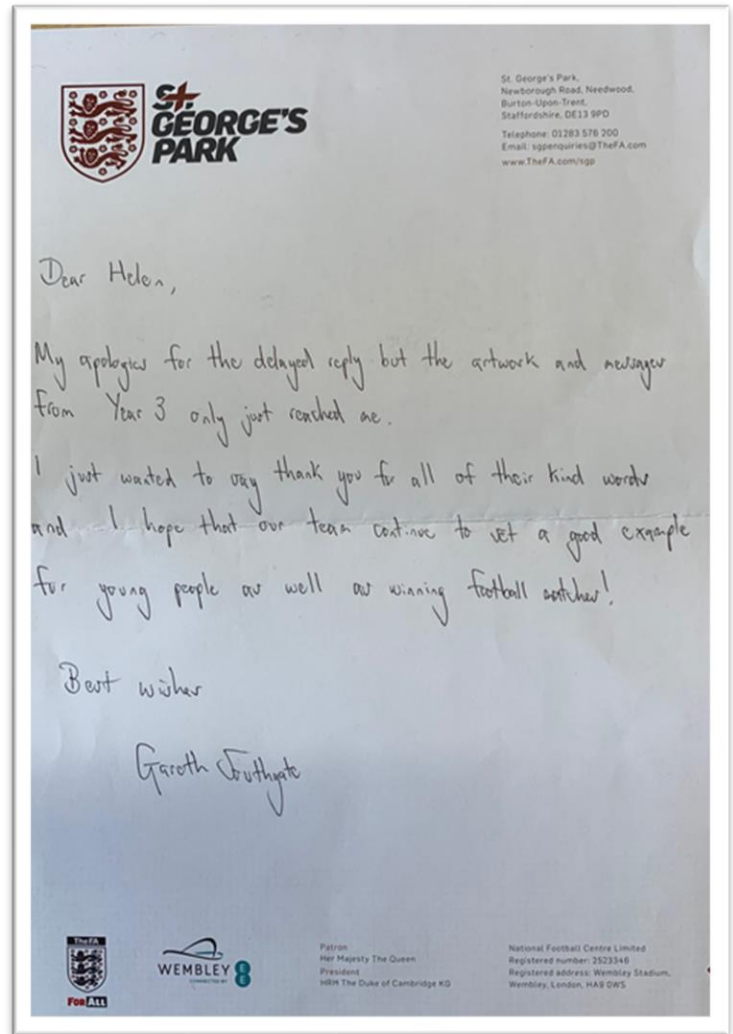 St.
GEORGE'S
PARK
St. George's Park,
Newborough Road, Needwood,
Burton-Upon-Trent,
Staffordshire, DE13 9PD
Telephone: 01283 576 200
Email: sgpenquiries@TheFA.com
www.TheFA.com/sgp
Dear Helen,
My apologies for the delayed reply but the artwork and messages
from Year 3 only just reached me.
I just wanted to say thank you for all of their kind words
and I hope that our team continue to set a good example
for young people as well as winning football matches!
Best wishes
Gareth Southgate
TheFA
FOR ALL
WEMBLEY
CONNECTED BY
EE
Patron
Her Majesty The Queen
President
HRH The Duke of Cambridge KG
National Football Centre Limited
Registered number: 2523346
Registered address: Wembley Stadium,
Wembley, London, HA9 0WS